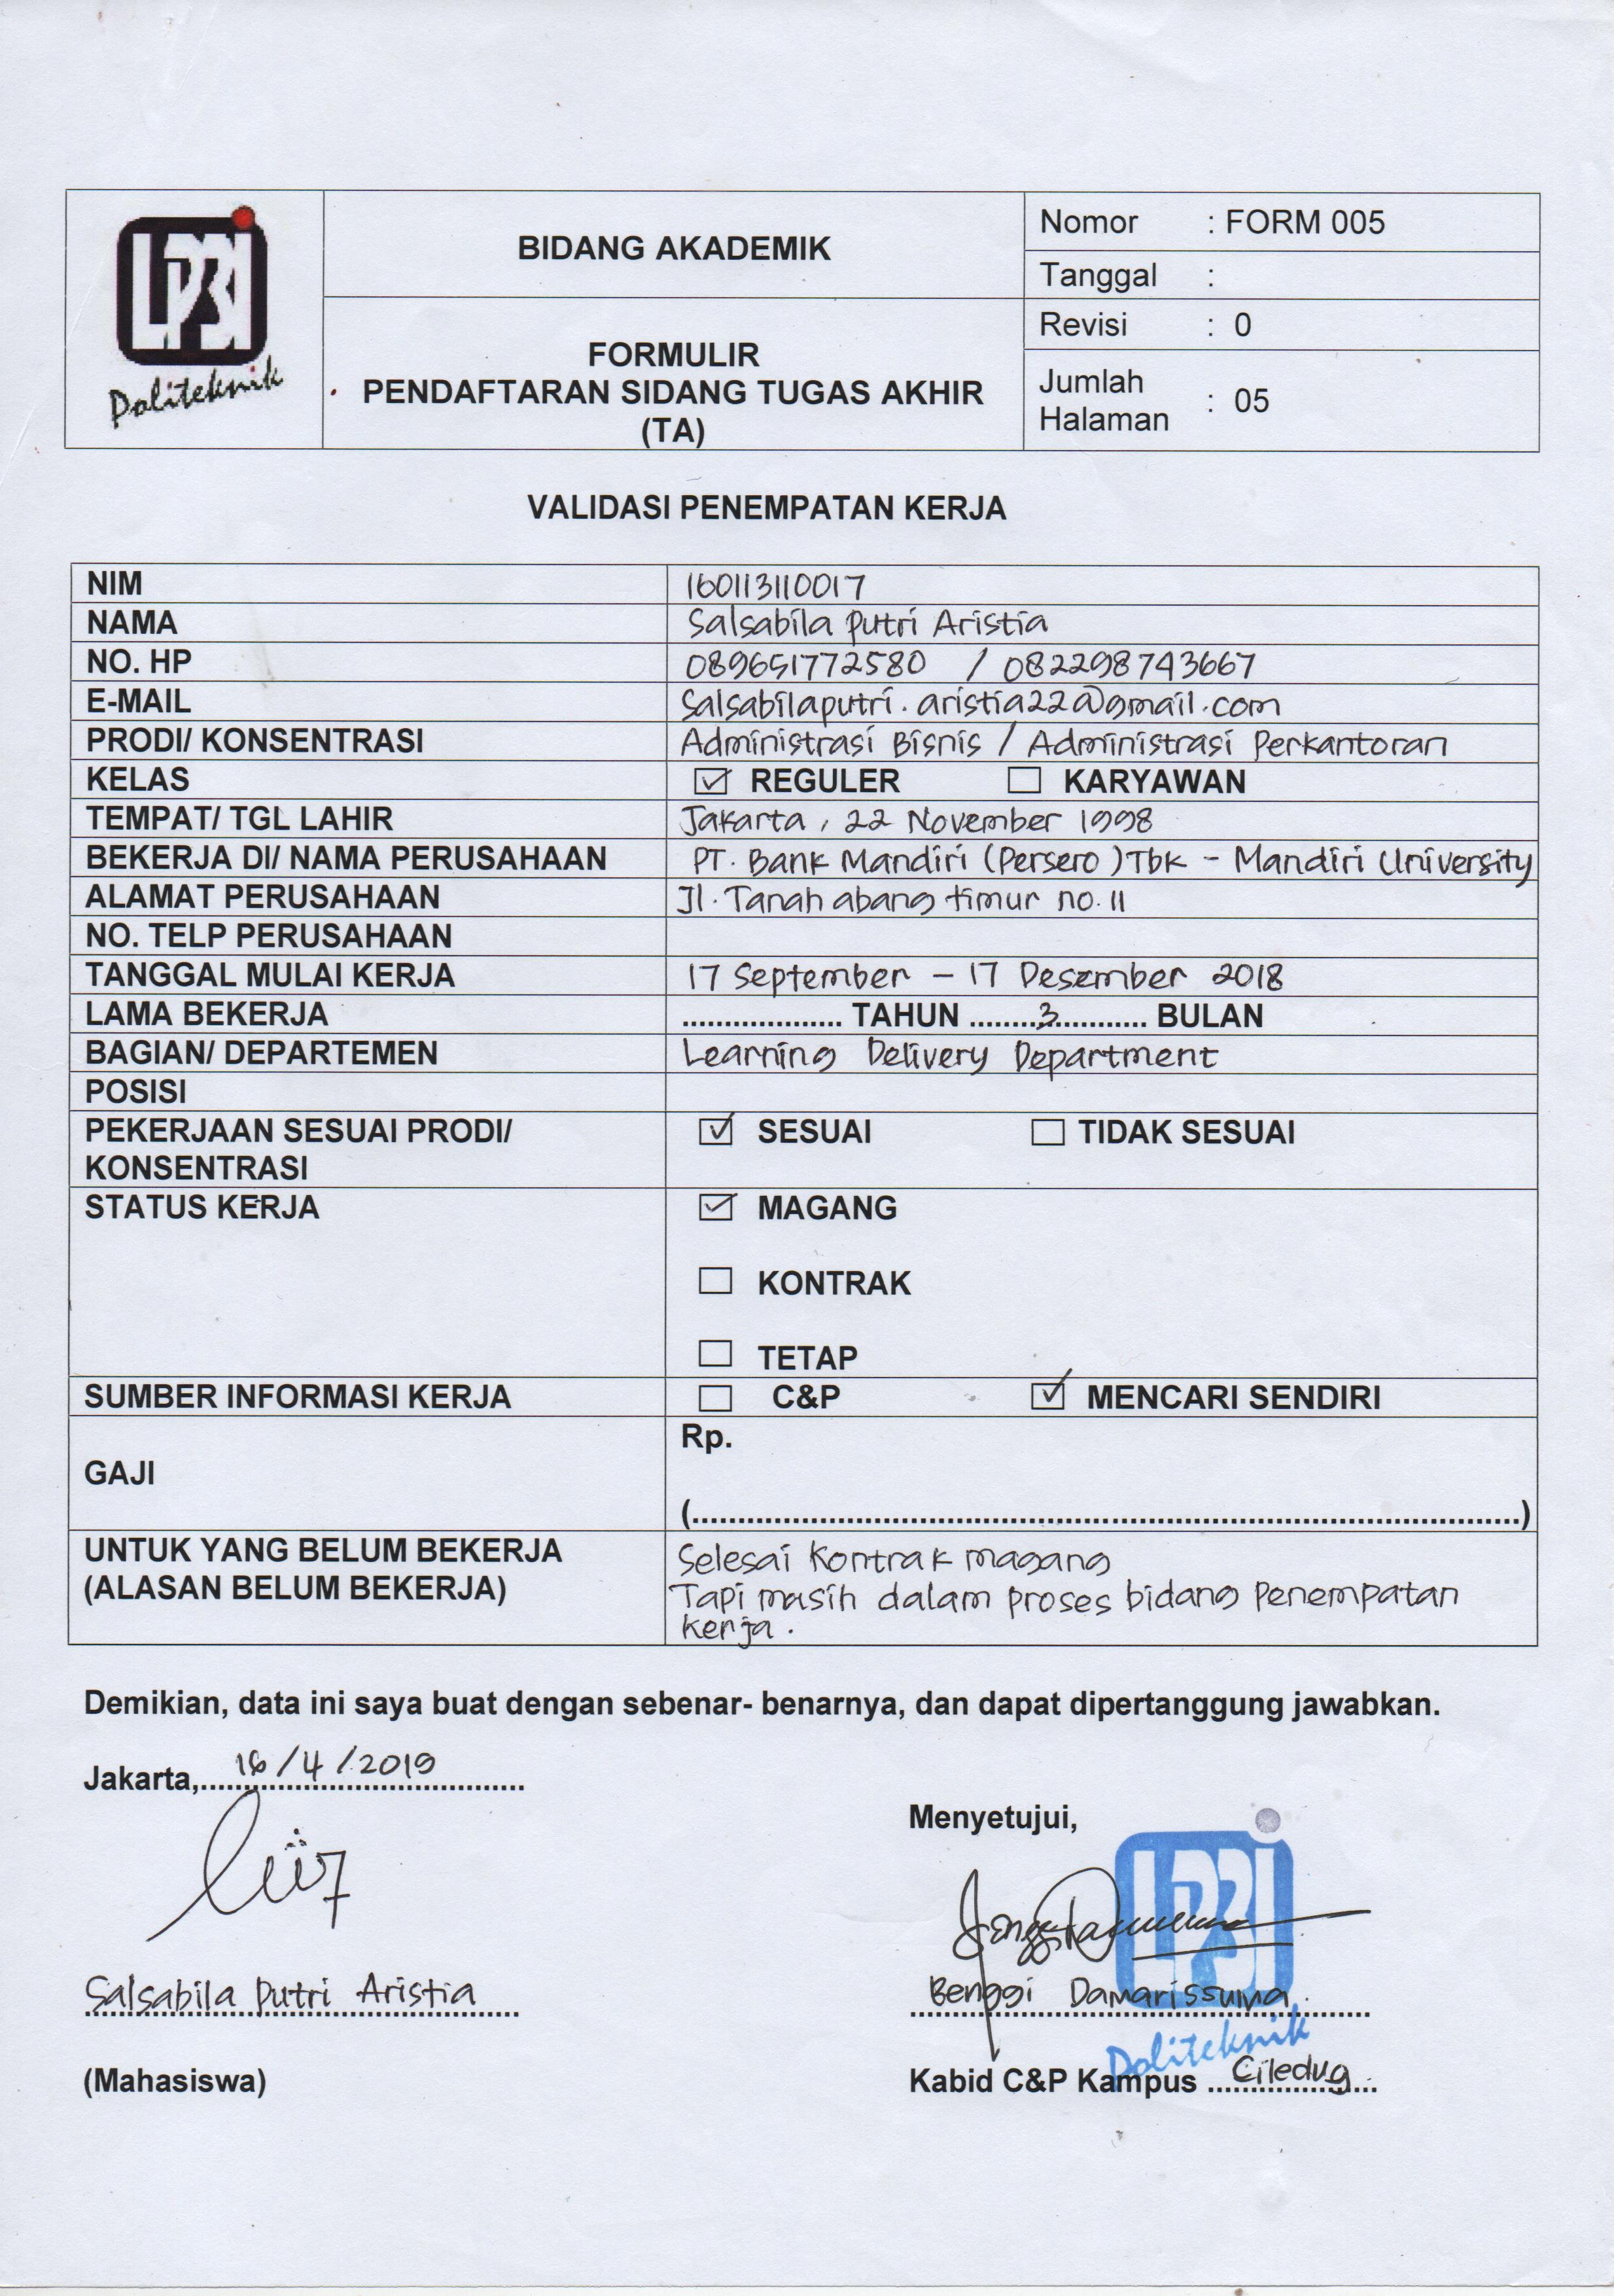 LP3I
Politeknik
BIDANG AKADEMIK
FORMULIR
PENDAFTARAN SIDANG TUGAS AKHIR
(TA)
Nomor : FORM 005
Tanggal :
Revisi : 0
Jumlah Halaman : 05
VALIDASI PENEMPATAN KERJA
NIM 160113110017
NAMA Salsabila Putri Aristia
NO. HP 089651772580 / 082298743667
E-MAIL Salsabilaputri.aristia22@gmail.com
PRODI/ KONSENTRASI Administrasi Bisnis / Administrasi Perkantoran
KELAS ☑ REGULER ☐ KARYAWAN
TEMPAT/ TGL LAHIR Jakarta, 22 November 1998
BEKERJA DI/ NAMA PERUSAHAAN PT. Bank Mandiri (Persero) Tbk - Mandiri University
ALAMAT PERUSAHAAN Jl. Tanah abang timur no. 11
NO. TELP PERUSAHAAN
TANGGAL MULAI KERJA 17 September - 17 Desember 2018
LAMA BEKERJA .................. TAHUN ........3........... BULAN
BAGIAN/ DEPARTEMEN Learning Delivery Department
POSISI
PEKERJAAN SESUAI PRODI/ ☑ SESUAI ☐ TIDAK SESUAI
KONSENTRASI
STATUS KERJA ☑ MAGANG
☐ KONTRAK
☐ TETAP
SUMBER INFORMASI KERJA ☐ C&P ☑ MENCARI SENDIRI
GAJI Rp.
(..........................................................................................)
UNTUK YANG BELUM BEKERJA Selesai kontrak magang
(ALASAN BELUM BEKERJA) Tapi masih dalam proses bidang Penempatan
kerja.
Demikian, data ini saya buat dengan sebenar- benarnya, dan dapat dipertanggung jawabkan.
Jakarta, 16/4/2019
Menyetujui,
LP3I
Salsabila Putri Aristia
Benggi Damarissuma
Politeknik
(Mahasiswa)
Kabid C&P Kampus Ciledug